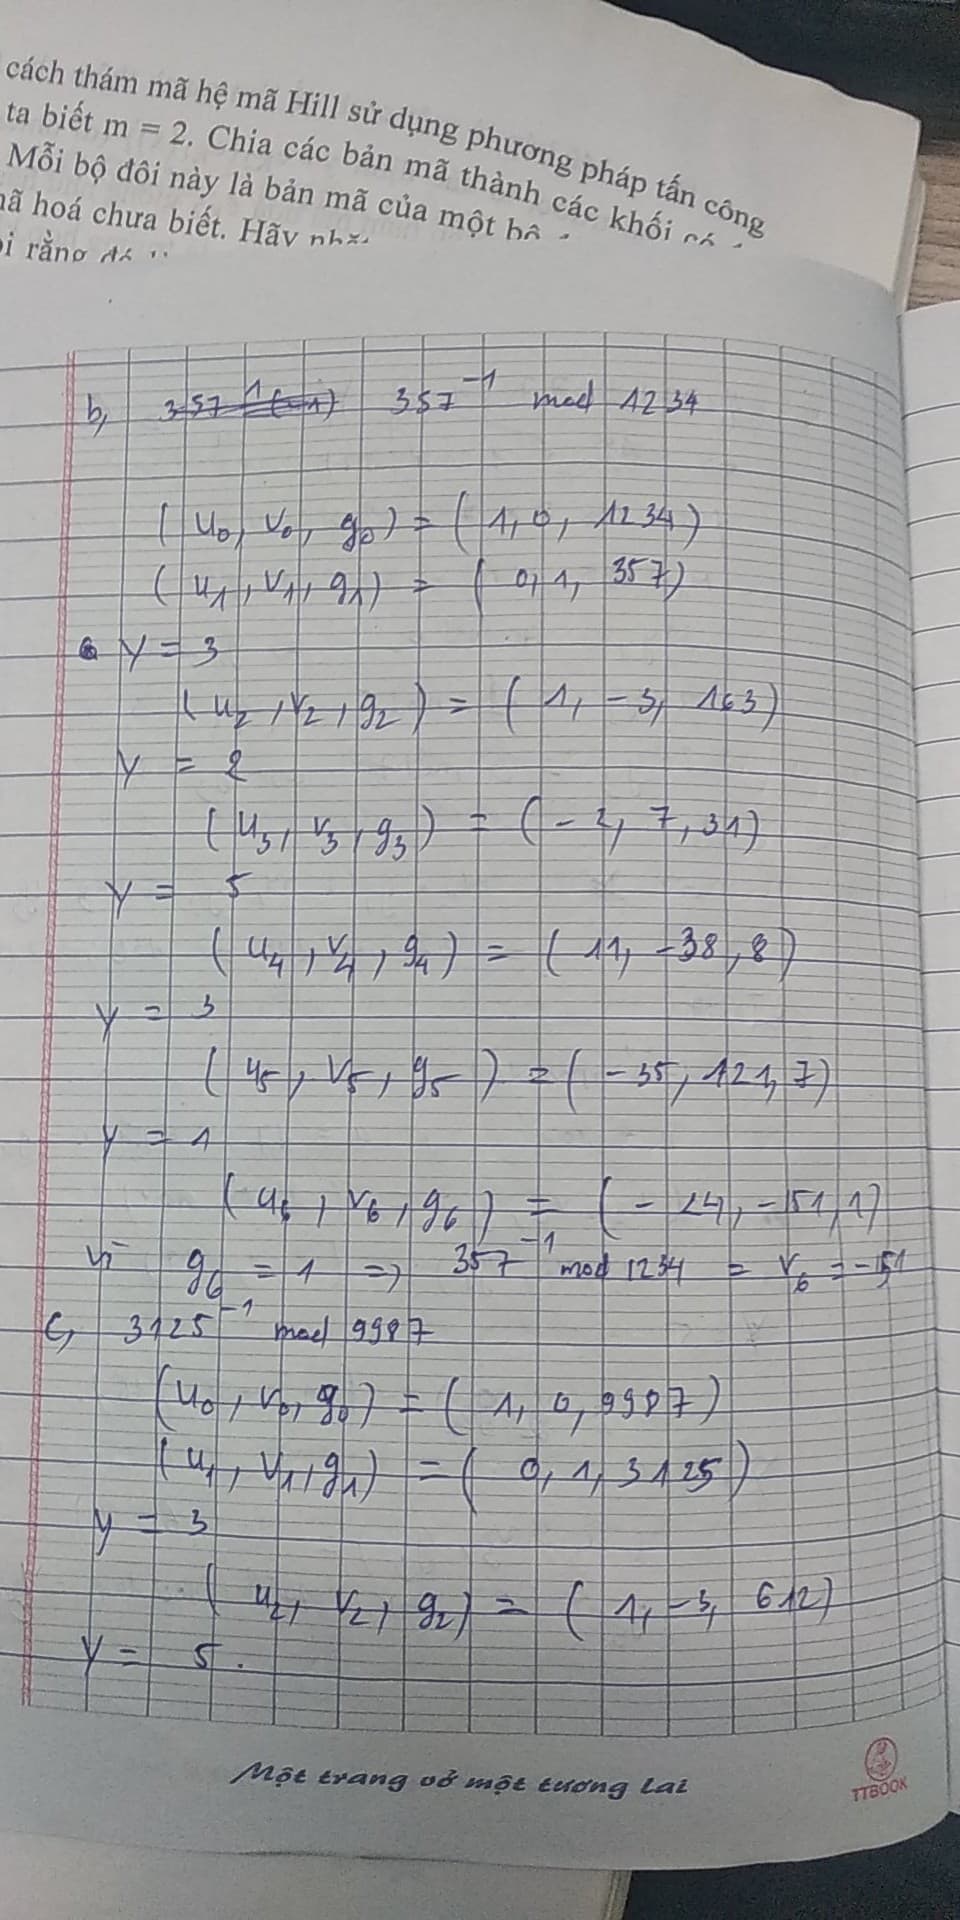 cách thám mã hệ mã Hill sử dụng phương pháp tấn công
ta biết m = 2. Chia các bản mã thành các khối
Mỗi bộ đôi này là bản mã của một
mã hoá chưa biết. Hãy
rằng đó
b, 357 357^-1 mod 1234
(u0, v0, g0) = (1, 0, 1234)
(u1, v1, g1) = (0, 1, 357)
y = 3
(u2, v2, g2) = (1, -3, 163)
y = 2
(u3, v3, g3) = (-2, 7, 31)
y = 5
(u4, v4, g4) = (11, -38, 8)
y = 3
(u5, v5, g5) = (-35, 121, 7)
y = 1
(u6, v6, g6) = (- 24, -151, 1)
Vì g6 = 1 => 357^-1 mod 1234 = v6 = -151
c, 3125^-1 mod 9987
(u0, v0, g0) = (1, 0, 9987)
(u1, v1, g1) = (0, 1, 3125)
y = 3
(u2, v2, g2) = (1, -3, 612)
y = 5.
Một trang vở một tương lai
TTBOOK